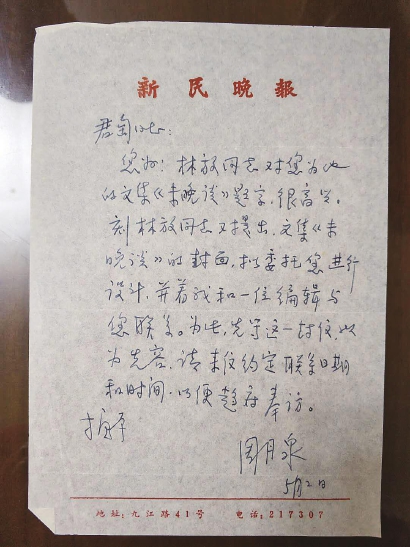 新民晚报
君匋同志：
您好！林放同志对您为他
的文集《未晚谈》题字，很高兴。
刻林放同志又提出，文集《未
晚谈》的封面，拟委托您进行
设计，并着我和一位编辑与
您联系。为此，先写这一封信，以
为先容，请来信约定联系日期
和时间，以便趋府奉访。
周月泉
5月2日
地址：九江路41号 电话：217307